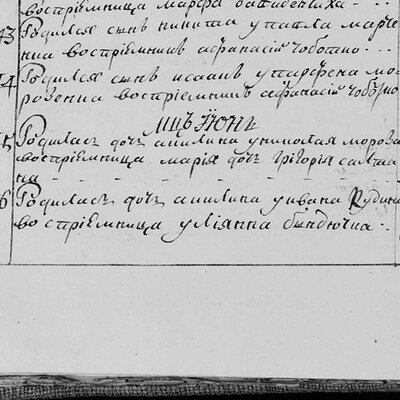 восприемница марфа
43 Родился сынъ никита у павла марче
нка восприемникъ афанасiй чоботко...
44 Родился сынъ исаакъ у парфена мо
розенка восприемникъ афанасiй чоботко
мцъ Iюнь
5 Родилась дочь акилина у николая мороза
восприемница марiя дочь григорiя салта
на
6 Родилась дочь акилина у ивана
восприемница улiянна бындючка..